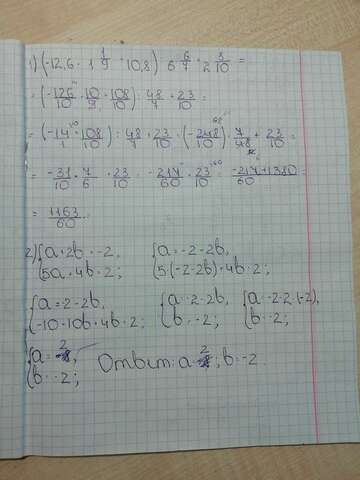 1) (-12,6 · 1 1/9 + 10,8) : 6 6/7 + 2 3/10 =
= (-126/10 · 10/9 + 108/10) : 48/7 + 23/10 =
= (-14/1 + 108/10) : 48/7 + 23/10 = (-248/10) · 7/48 + 23/10 =
= -31/10 · 7/6 + 23/10 = -217/60 + 23/10 = -217+1380/60 =
= 1163/60
2) {a + 2b = -2, {a = -2 - 2b,
{5a + 4b = 2; {5·(-2-2b) + 4b = 2;
{a = -2 - 2b, {a = -2 - 2b, {a = -2 - 2·(-2),
{-10 - 10b + 4b = 2; {b = -2; {b = -2;
{a = 2,
{b = -2;
Ответ: a = 2; b = -2.